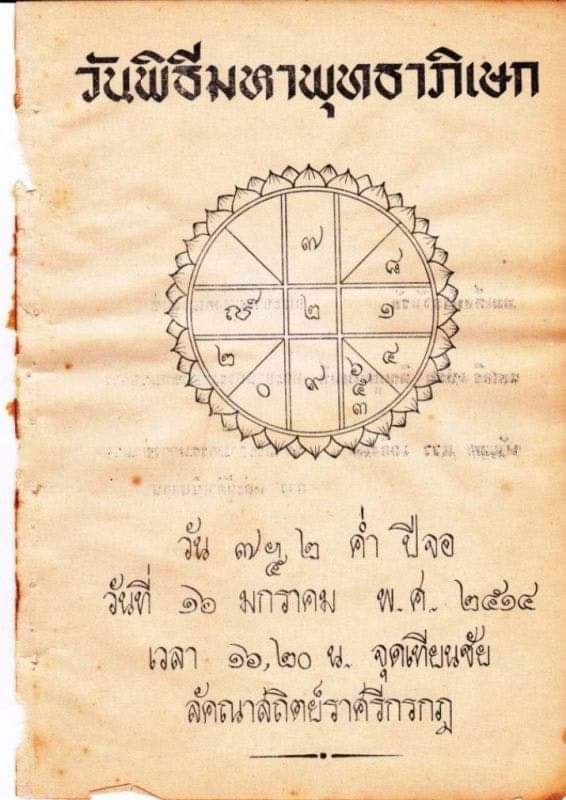 วันพิธีมหาพุทธาภิเษก
๗
๘
๒
๑
๒
๔
๐
๙
๖
๕
๓
วัน ๗ ฯ ๕ ๒ ค่ำ ปีจอ
วันที่ ๑๖ มกราคม พ.ศ. ๒๕๑๔
เวลา ๑๖,๒๐ น. จุดเทียนชัย
ลัคณาสถิตย์ราศรีกรกฎ